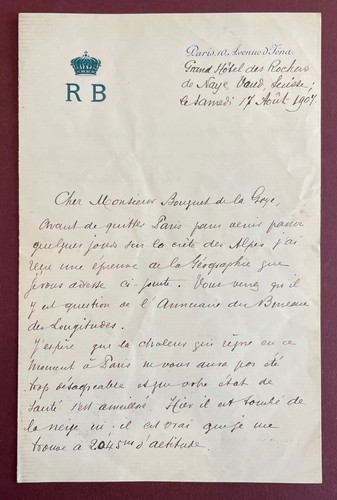 R B
Paris, 10, Avenue d'Iéna.
Grand Hôtel des Rochers
de Naye, Vaud, Suisse;
le samedi 17 Août 1907.
Cher Monsieur Bouquet de la Grye,
Avant de quitter Paris pour venir passer
quelques jours sur la crête des Alpes j'ai
reçu une épreuve de la Géographie que
je vous adresse ci-jointe. Vous verrez qu'il
y est question de l'Annuaire du Bureau
des Longitudes.
J'espère que la chaleur qui règne en ce
moment à Paris ne vous aura pas été
trop désagréable et que votre état de
santé s'est amélioré. Hier il est tombé de
la neige ici; il est vrai que je me
trouve à 2045m d'altitude.